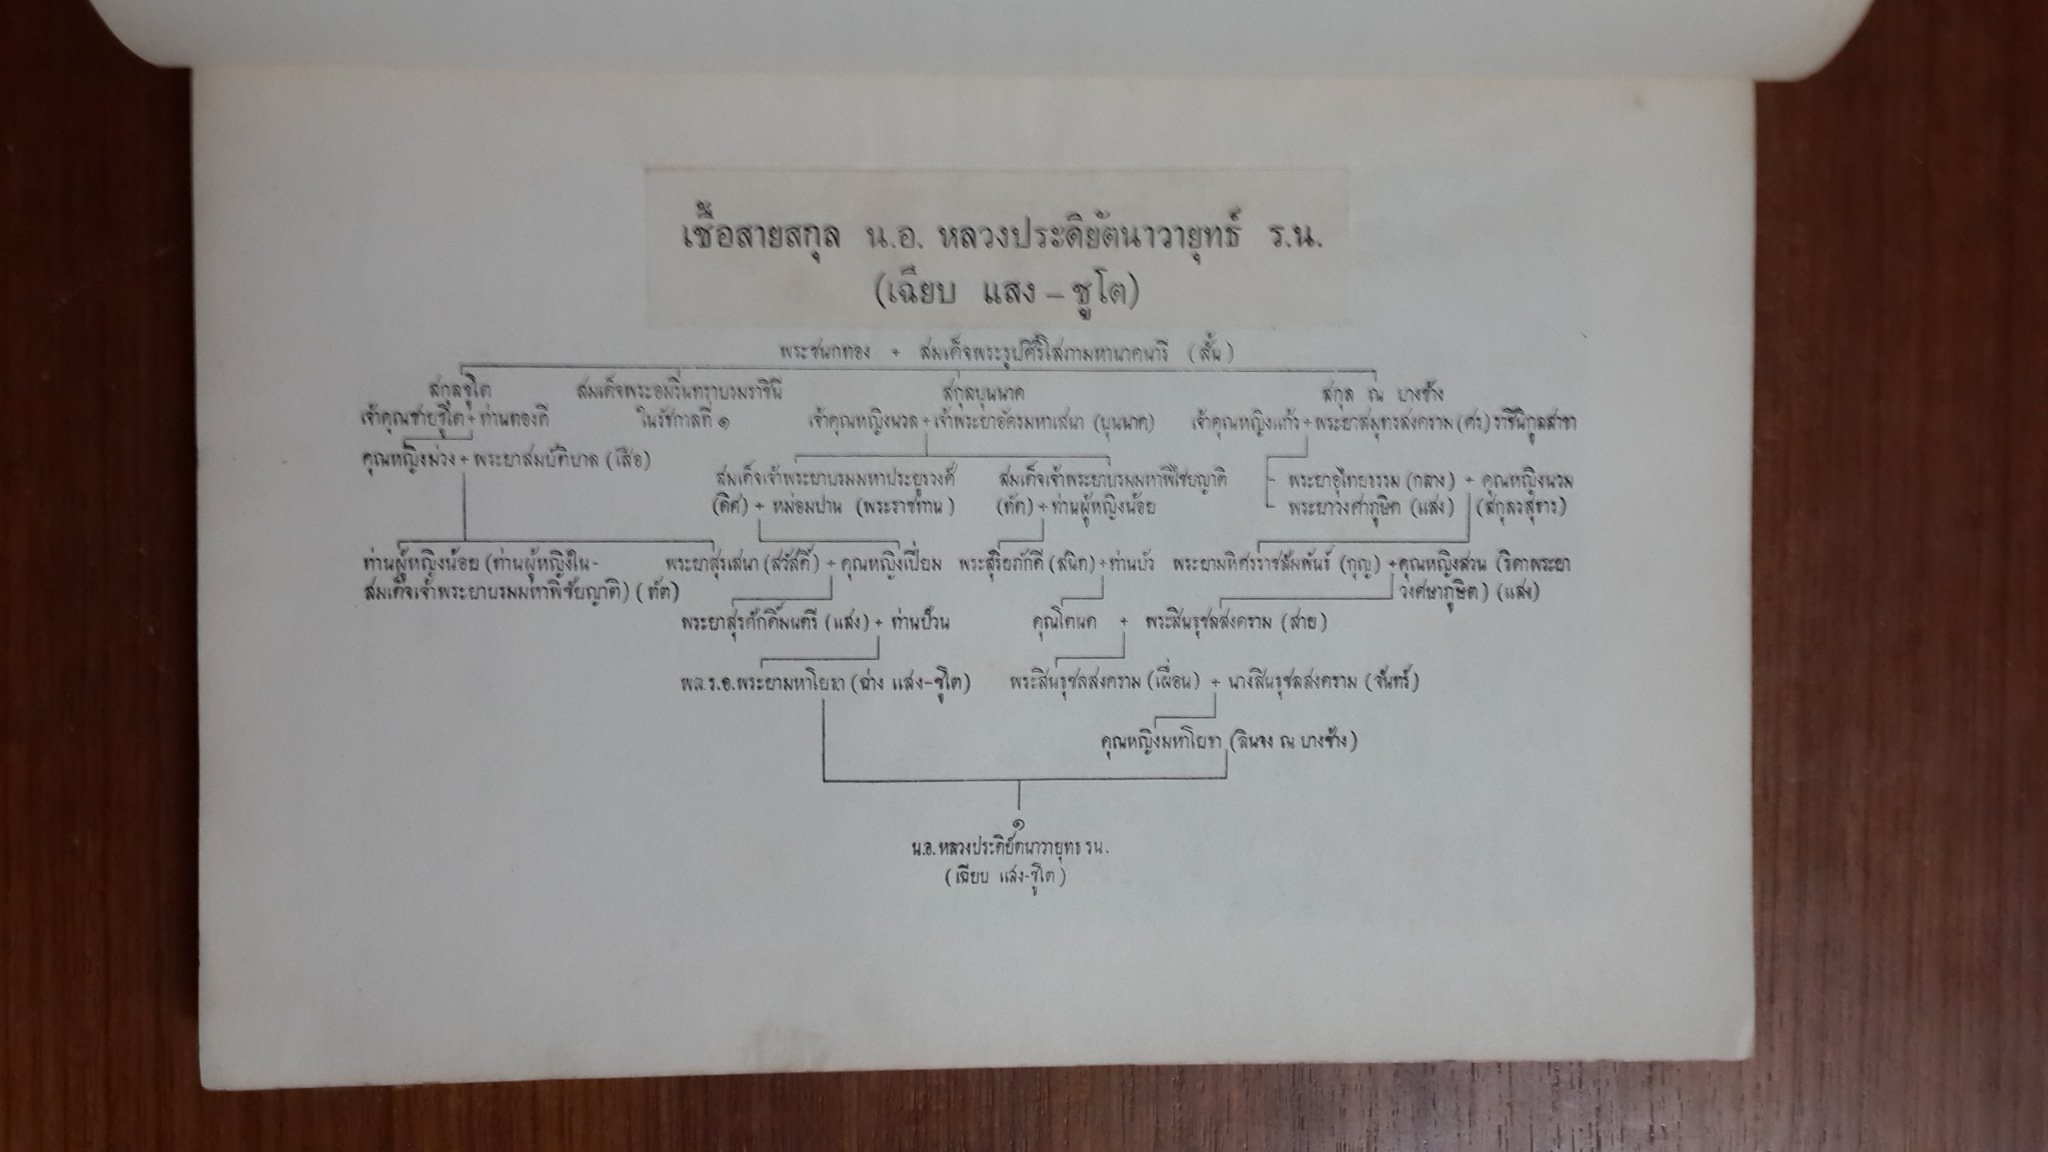 เชื้อสายสกุล น.อ. หลวงประดิยัตนาวายุทธ์ ร.น.
(เฉียบ แสง – ชูโต)
พระชนกทอง + สมเด็จพระรูปศิริโสภามหานาคนารี (สั้น)
สกุลชูโต สมเด็จพระอมรินทราบรมราชินี สกุลบุนนาค สกุล ณ บางช้าง
เจ้าคุณชายชูโต + ท่านทองดี ในรัชกาลที่ ๑ เจ้าคุณหญิงนวล + เจ้าพระยาอัครมหาเสนา (บุนนาค) เจ้าคุณหญิงแก้ว + พระยาสมุทรสงคราม (ศร) ราชินิกูลสาขา
คุณหญิงม่วง + พระยาสมบัติบาล (เสือ)
สมเด็จเจ้าพระยาบรมมหาประยูรวงศ์ สมเด็จเจ้าพระยาบรมมหาพิไชยญาติ พระยาอุไทยธรรม (กลาง) + คุณหญิงนวม
(ดิศ) + หม่อมปาน (พระราชทาน) (ทัต) + ท่านผู้หญิงน้อย พระยาวงศาภูษิต (แสง) (สกุลวสุธาร)
ท่านผู้หญิงน้อย (ท่านผู้หญิงใน- พระยาสุรเสนา (สวัสดิ์) + คุณหญิงเปี่ยม พระสุริยภักดี (สนิท) + ท่านบัว พระยามหิศรราชสัมพันธ์ (กุญ) + คุณหญิงสวน (ธิดาพระยา
สมเด็จเจ้าพระยาบรมมหาพิชัยญาติ) (ทัต) วงศษาภูษิต) (แสง)
พระยาสุรศักดิ์มนตรี (แสง) + ท่านป้วน คุณโตนด + พระสินธุชลสงคราม (สาย)
พล.ร.อ.พระยามหาโยธา (ฉ่าง แสง-ชูโต) พระสินธุชลสงคราม (เผื่อน) + นางสินธุชลสงคราม (จันทร์)
คุณหญิงมหาโยธา (ลินจง ณ บางช้าง)
๑
น.อ.หลวงประดิยัตนาวายุทธ ร.น.
(เฉียบ แสง-ชูโต)